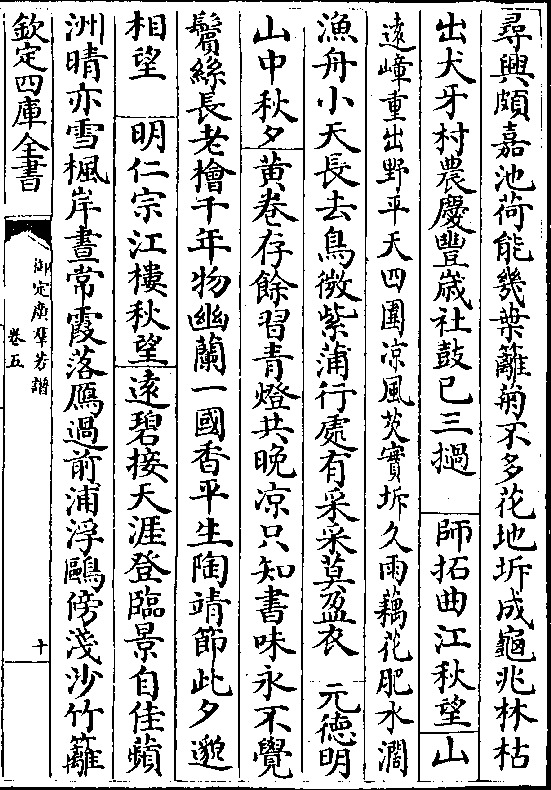 尋興頗嘉池荷能幾葉籬菊不多花地坼成龜兆林枯
出犬牙村農慶豐歳社鼓已三撾　師拓曲江秋望山
遠嶂重出野平天四圍凉風芡實坼久雨藕花肥水濶
漁舟小天長去鳥微紫蒲行處有采采莫盈衣　元徳明
山中秋夕黄卷存餘習青燈共晚凉只知書味永不覺
鬢絲長老檜千年物幽蘭一國香平生陶靖節此夕邈
相望　明仁宗江樓秋望逺碧接天涯登臨景自佳蘋
洲晴亦雪楓岸晝常霞落鴈過前浦浮鷗傍淺沙竹籬
欽定四庫全書
御定廣羣芳譜
卷五
十